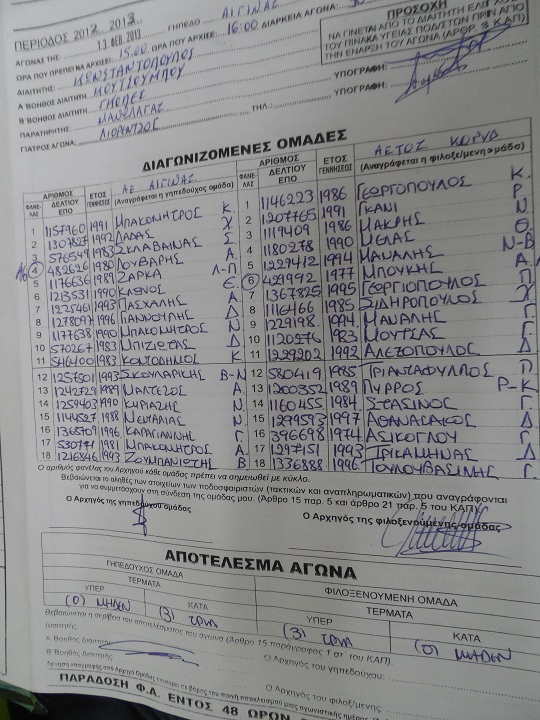 ΠΕΡΙΟΔΟΣ 2012 2013
ΑΓΩΝΑΣ ΤΗΣ: 13 ΦΕΒ 2013 ΓΗΠΕΔΟ ΑΙΓΙΝΑΣ
ΩΡΑ ΠΟΥ ΠΡΕΠΕΙ ΝΑ ΑΡΧΙΣΕΙ: 15:00 ΩΡΑ ΠΟΥ ΑΡΧΙΣΕ: 16:00 ΔΙΑΡΚΕΙΑ ΑΓΩΝΑ:
ΠΡΟΣΟΧΗ
ΝΑ ΓΙΝΕΤΑΙ ΑΠΟ ΤΟ ΔΙΑΙΤΗΤΗ ΕΛΕΓΧΟΣ
ΤΟΥ ΠΙΝΑΚΑ ΥΓΕΙΑΣ ΠΟΔ/ΣΤΩΝ ΠΡΙΝ ΑΠΟ
ΤΗΝ ΕΝΑΡΞΗ ΤΟΥ ΑΓΩΝΑ (ΑΡΘΡ. ΚΑΠ)
ΔΙΑΙΤΗΤΗΣ: ΚΩΝΣΤΑΝΤΟΠΟΥΛΟΣ
Α΄ ΒΟΗΘΟΣ ΔΙΑΙΤΗΤΗ ΜΟΥΤΣΟΥΜΠΟΥ ΥΠΟΓΡΑΦΗ:
Β΄ ΒΟΗΘΟΣ ΔΙΑΙΤΗΤΗ: ΥΠΟΓΡΑΦΗ:
ΠΑΡΑΤΗΡΗΤΗΣ: ΜΑΝΩΛΑΓΑΣ
ΓΙΑΤΡΟΣ ΑΓΩΝΑ: ΛΙΟΡΑΝΤΖΟΣ ΤΗΛ.:
ΔΙΑΓΩΝΙΖΟΜΕΝΕΣ ΟΜΑΔΕΣ
ΦΑΝΕΛΑΣ ΑΡΙΘΜΟΣ ΔΕΛΤΙΟΥ ΕΠΟ ΕΤΟΣ ΓΕΝΝΗΣΕΩΣ ΑΕ ΑΙΓΙΝΑΣ (Αναγράφεται η γηπεδούχος ομάδα)
1 1157960 1991 ΜΠΑΚΟΝΗΤΡΟΣ Κ.
2 1307827 1992 ΛΑΔΑΣ Χ.
3 576549 1983 ΣΚΛΑΒΑΙΝΑΣ Σ.
4 482626 1980 ΓΟΥΒΑΡΗΣ Α.
5 1176636 1989 ΖΑΡΚΑ Λ-Π
6 1213531 1990 ΚΛΕΝΟΣ Ε.
7 1225461 1993 ΠΑΣΧΑΛΗΣ Α.
8 1278097 1996 ΓΙΑΝΝΟΥΛΗΣ Δ.
9 1177638 1990 ΜΠΑΚΟΜΗΤΡΟΣ Ν.
10 570267 1983 ΜΠΙΖΙΩΤΑΣ Δ.
11 546400 1983 ΚΟΝΤΟΔΗΜΟΣ Κ
12 1257501 1993 ΣΚΟΥΛΑΡΙΚΗΣ Β-Ν
13 1242729 1989 ΜΑΛΤΕΖΟΣ Α.
14 1259403 1990 ΚΥΡΙΑΖΗΣ Ν.
15 1144527 1988 ΜΕΝΤΑΛΙΑΣ Ν.
16 1365709 1996 ΚΑΡΑΓΙΑΝΝΗΣ Γ.
17 530771 1981 ΜΠΑΚΟΜΗΤΡΟΣ Α.
18 1216846 1993 ΖΟΥΜΠΑΝΙΩΤΗΣ Β
ΦΑΝΕΛΑΣ ΑΡΙΘΜΟΣ ΔΕΛΤΙΟΥ ΕΠΟ ΕΤΟΣ ΓΕΝΝΗΣΕΩΣ ΑΕΤΟΣ ΚΟΡΥΔ (Αναγράφεται η φιλοξε/μενη ομάδα)
1 1146223 1986 ΓΕΩΡΓΟΠΟΥΛΟΣ Κ.
2 1207765 1991 ΓΚΑΝΙ Ρ.
3 1119409 1986 ΜΑΚΡΗΣ Ν
4 1180278 1990 ΜΕΛΑΣ Θ.
5 1229412 1994 ΜΑΝΑΛΗΣ Ν-Β
6 421992 1977 ΜΠΟΥΚΗΣ Α.
7 1367825 1995 ΓΕΩΡΓΙΟΠΟΥΛΟΣ Π
8 1116466 1985 ΣΙΔΗΡΟΠΟΥΛΟΣ Χ
9 1229198 1994 ΜΑΝΑΛΗΣ Γ.
10 1120276 1983 ΜΟΥΤΣΑΣ Γ.
11 1229202 1992 ΑΛΕΞΟΠΟΥΛΟΣ Δ
12 580419 1985 ΤΡΙΑΝΤΑΦΥΛΛΟΣ Π.
13 1200352 1989 ΠΥΡΡΟΣ Ρ-Κ
14 1160455 1984 ΣΤΑΣΙΝΟΣ Γ.
15 1299593 1997 ΑΘΑΝΑΣΑΚΟΣ Δ.
16 396698 1974 ΑΣΙΚΟΓΛΟΥ Γ.
17 1297151 1993 ΤΡΙΚΑΜΗΝΑΣ Δ
18 1336888 1996 ΤΟΥΛΟΥΒΑΣΙΛΗΣ Γ.
Ο αριθμός φανέλας του Αρχηγού κάθε ομάδας πρέπει να σημειωθεί με κύκλο.
Βεβαιώνεται το αληθές των στοιχείων των ποδοσφαιριστών (τακτικών και αναπληρωματικών) που αναγράφονται
για να συμμετάσχουν στη σύνθεση της ομάδας μου. (Άρθρο 15 παρ. 5 και άρθρο 21 παρ. 5 του ΚΑΠ).
Ο Αρχηγός του γηπεδούχου ομάδας
Ο Αρχηγός της φιλοξενούμενης ομάδας
ΑΠΟΤΕΛΕΣΜΑ ΑΓΩΝΑ
ΓΗΠΕΔΟΥΧΟΣ ΟΜΑΔΑ ΦΙΛΟΞΕΝΟΥΜΕΝΗ ΟΜΑΔΑ
ΤΕΡΜΑΤΑ ΤΕΡΜΑΤΑ
ΥΠΕΡ ΚΑΤΑ ΥΠΕΡ ΚΑΤΑ
(0) ΜΗΔΕΝ (3) ΤΡΙΑ (3) ΤΡΙΑ (0) ΜΗΔΕΝ
Βεβαιώνεται η ακρίβεια του αποτελέσματος του αγώνα (Άρθρο 15 παράγραφος 1 στ΄ του ΚΑΠ).
Διαιτητής:
Α΄ Βοηθός Διαιτητή: Ο Αρχηγός του γηπεδούχου:
Β΄ Βοηθός Διαιτητή: Ο Αρχηγός του φιλοξ/μενου:
ΠΑΡΑΔΟΣΗ Φ.Α. ΕΝΤΟΣ 48 ΩΡΩΝ